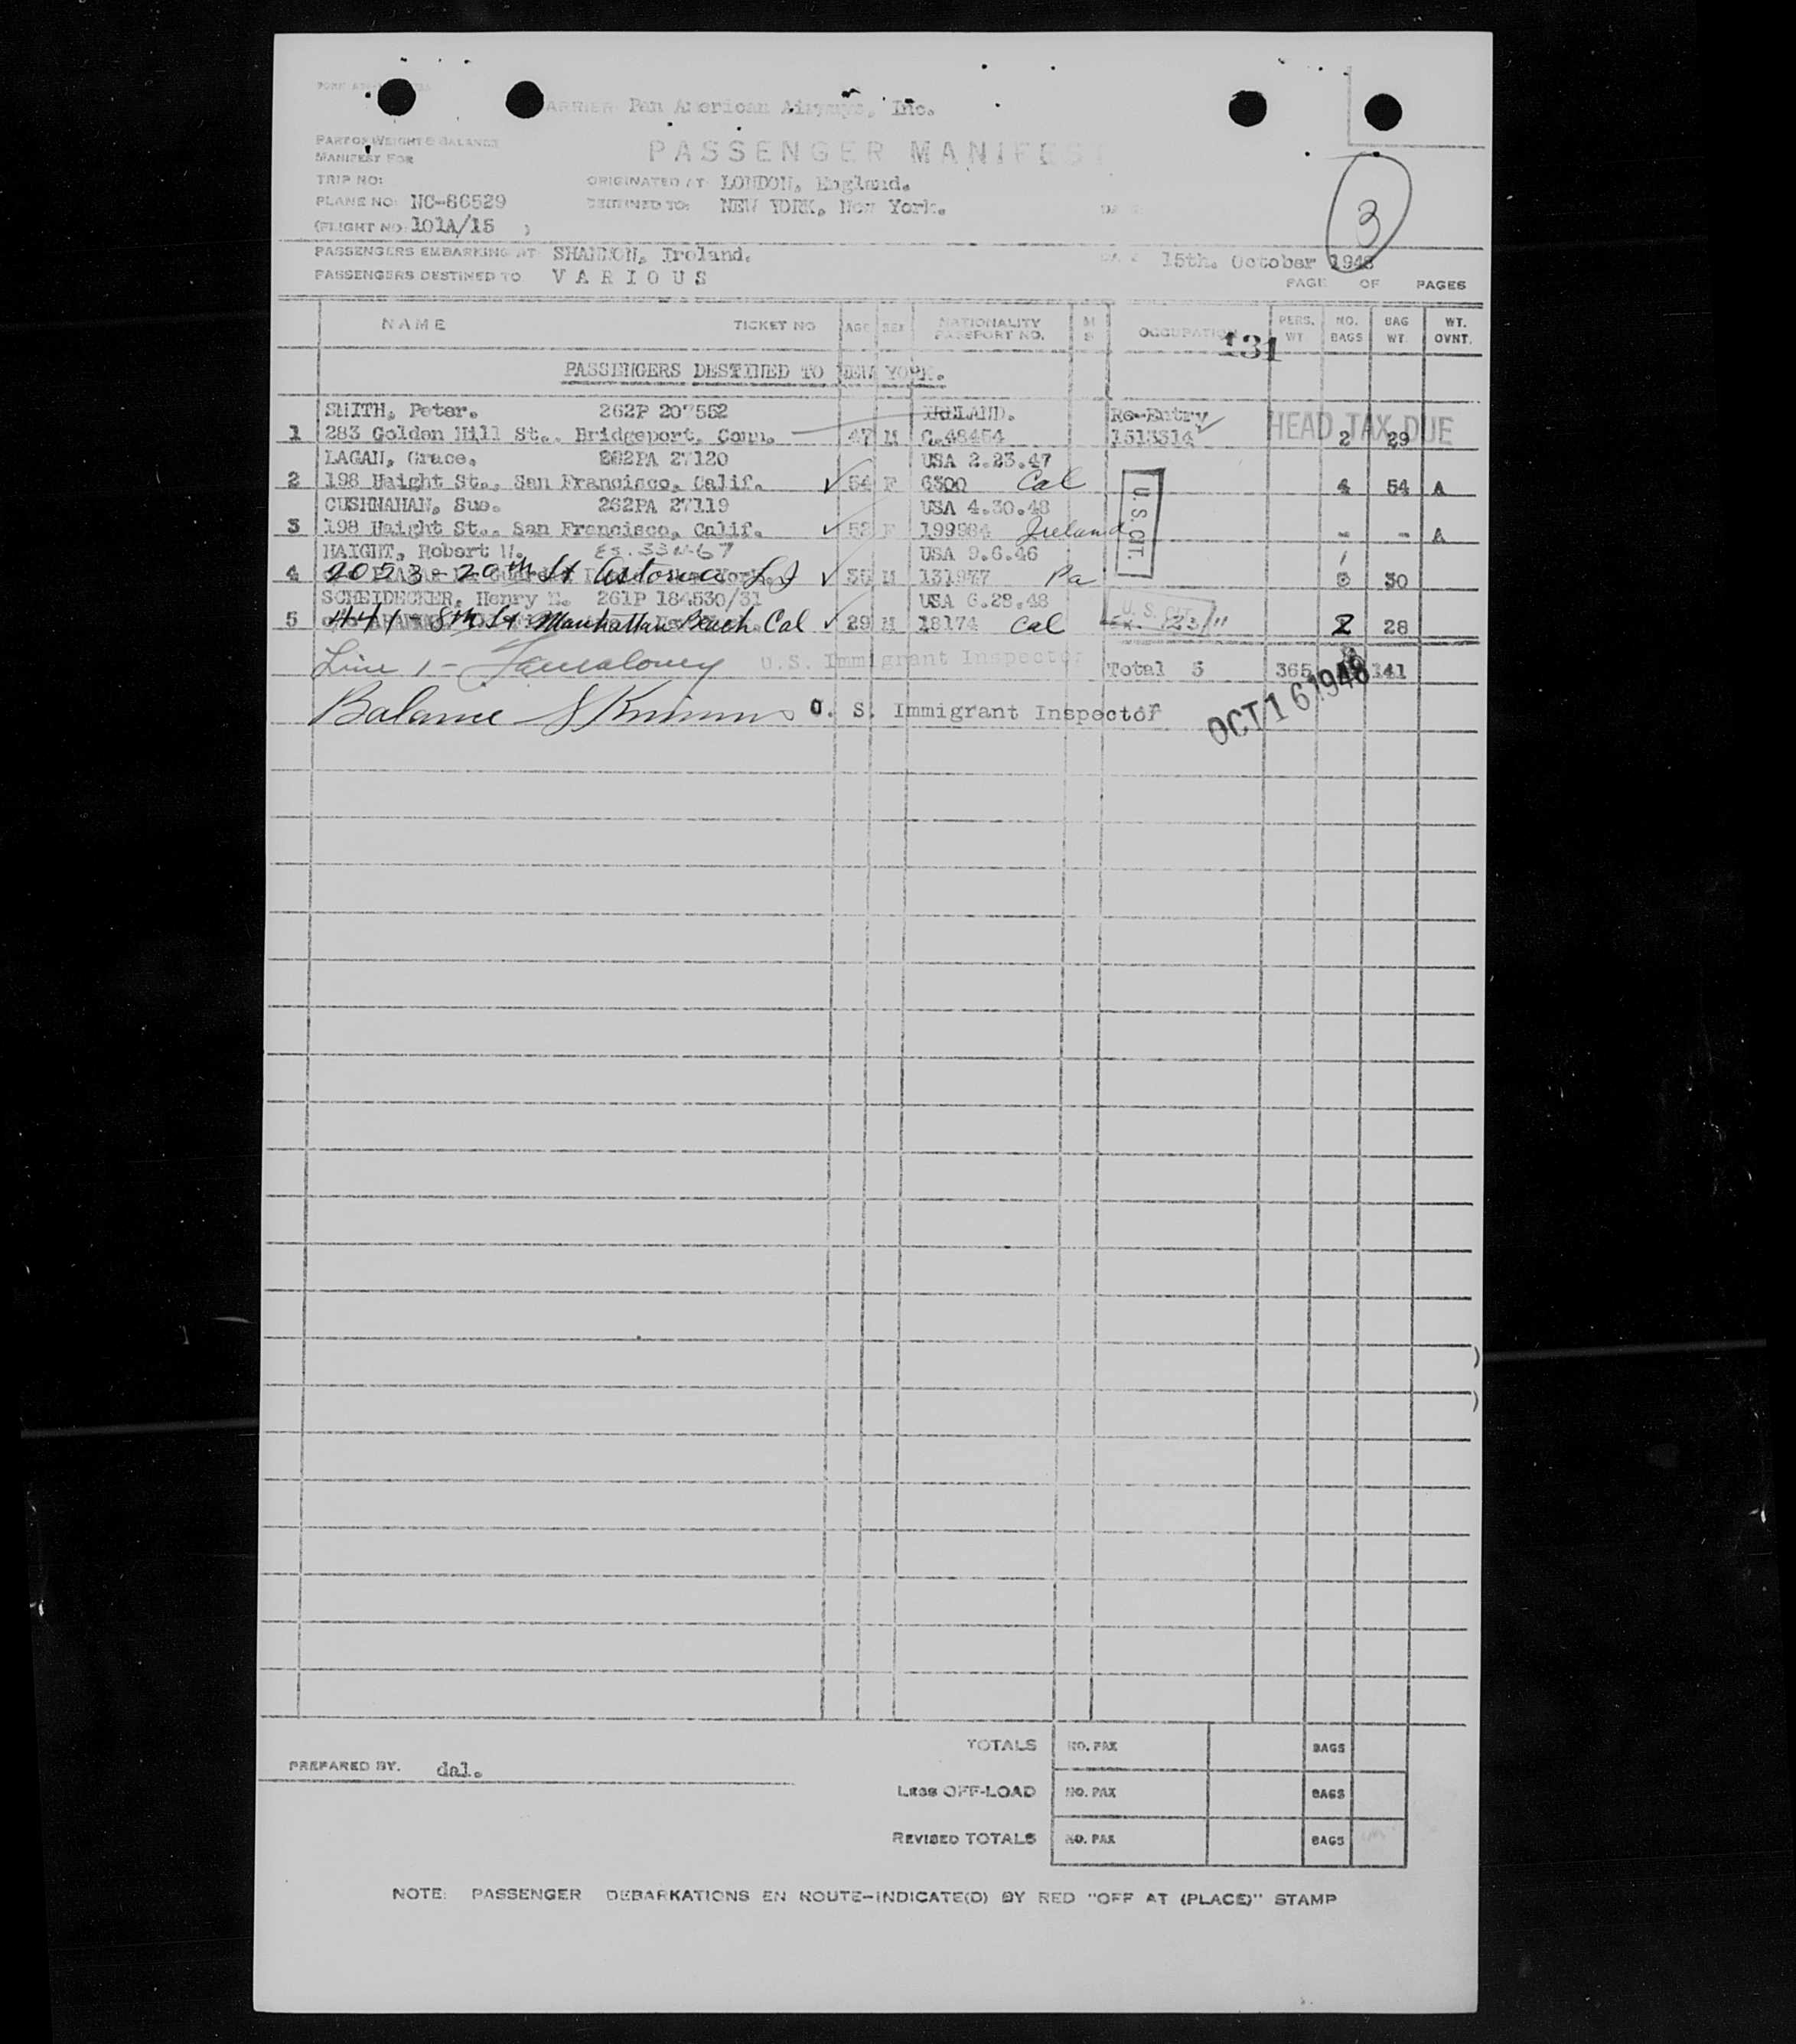 CARRIER Pan American Airways, Inc.
PART OF WEIGHT & BALANCE
MANIFEST FOR
PASSENGER MANIFEST
TRIP NO:
ORIGINATED AT LONDON, England.
PLANE NO: NC-86529
DESTINED TO: NEW YORK, New York.
3
(FLIGHT NO: 101A/15 )
PASSENGERS EMBARKING AT SHANNON, Ireland.
DATE 15th. October 1948
PASSENGERS DESTINED TO VARIOUS
PAGE OF PAGES
NAME TICKET NO AGE SEX NATIONALITY PASSPORT NO. M S OCCUPATION PERS. WT NO. BAGS BAG WT. WT. OVNT.
131
PASSENGERS DESTINED TO NEW YORK.
SMITH, Peter. 262P 207552 IRELAND. Re-Entry
HEAD TAX DUE
1 283 Golden Hill St., Bridgeport, Conn. 47 M C.48454 1513614 2 29
LAGAN, Grace. 262PA 27120 USA 2.23.47
2 198 Haight St., San Francisco, Calif. 54 F 6300 Cal 4 54 A
CUSHNAHAN, Sue. 262PA 27119 USA 4.30.48
3 198 Haight St., San Francisco, Calif. 52 F 199984 Ireland - - A
U.S. CIT.
HAIGHT, Robert W. USA 9.6.46
4 2053 - 20th St Astoria L I M 131977 Pa 30
SCHEIDECKER, Henry E. 261P 184530/31 USA 6.28.48
U.S. CIT.
5 441 - 8th St Manhattan Beach Cal 29 M 18174 Cal 2 28
Line 1 - U.S. Immigrant Inspector Total 5 365 141
Balance U. S. Immigrant Inspector
OCT 16 1948
TOTALS NO. PAX BAGS
PREPARED BY. dal.
LESS OFF-LOAD NO. PAX BAGS
REVISED TOTALS NO. PAX BAGS
NOTE: PASSENGER DEBARKATIONS EN ROUTE-INDICATE(D) BY RED "OFF AT (PLACE)" STAMP